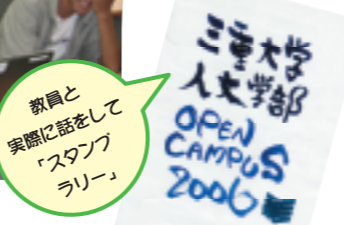 教員と
実際に話をして
「スタンプ
ラリー」
三重大学
人文学部
OPEN
CAMPUS
2006